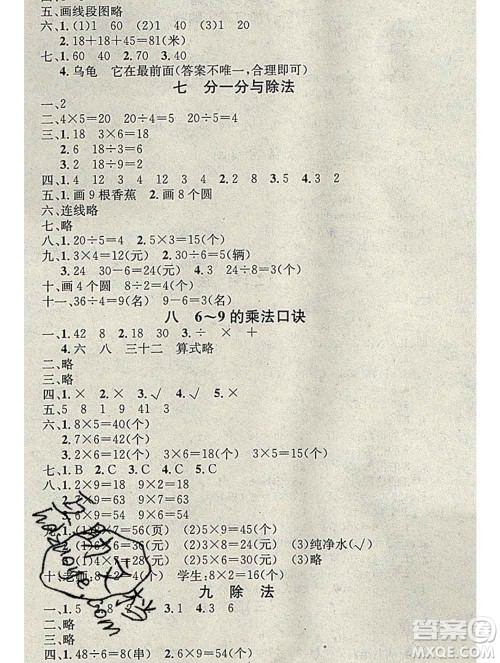 五、画线段图略
六、1.(1)1 60 40 (2)1 60 40
2.18+18+45=81(米)
七、1.60 2.40 3.70 40
4.乌龟 它在最前面(答案不唯一,合理即可)
七 分一分与除法
一、2
二、4×5=20 20÷4=5
三、1.18 3×6=18
2.6 18÷3=6
3.2 18÷9=2
四、1.4 12 3 4 12 4 3 2.2 8 3.5 4.10
五、1.画9根香蕉 2.画8个圆
六、连线略
七、略
八、1.20÷5=4 2.5×3=15(个)
九、1.3×4=12(元) 2.15÷3=5(辆)
3.24 30-6=24(元) 4.3 9÷3=3
十、画4个圆 24÷6=4
十一、36÷4=9(名) 9-6=3(名)
八 6~9的乘法口诀
一、1.42 8 2.18 30 3.÷ - × +
4.六 八 三十二 算式略
二、略
三、略
四、1.× 2.× 3.√ 4.√ 5.×
五、5 8 1 9 5 3
六、1.8×5=40(个)
2.7×6=42(个)
3.2×6=12(个) 3×6=18(个) 3×5=15(个)
七、1.B 2.C 3.C 4.C
八、1.2×9=18 2×8=16
7×9=63
2.6×9=54
×7=56(页) (2)5×9=45(个)
(1)6×6=36(元) (2)3×8=24(元) (3)纯净水(√)
(4)3×7=21(元) (5)略
学生:6×8=48(个)
九 除 法
一、1.5 4 8 2.7 2 3.1 4.3 6
二、略
三、略
四、1.48÷6=8(串) 2.36÷9=4(个)
答案圈
MXQE.COM